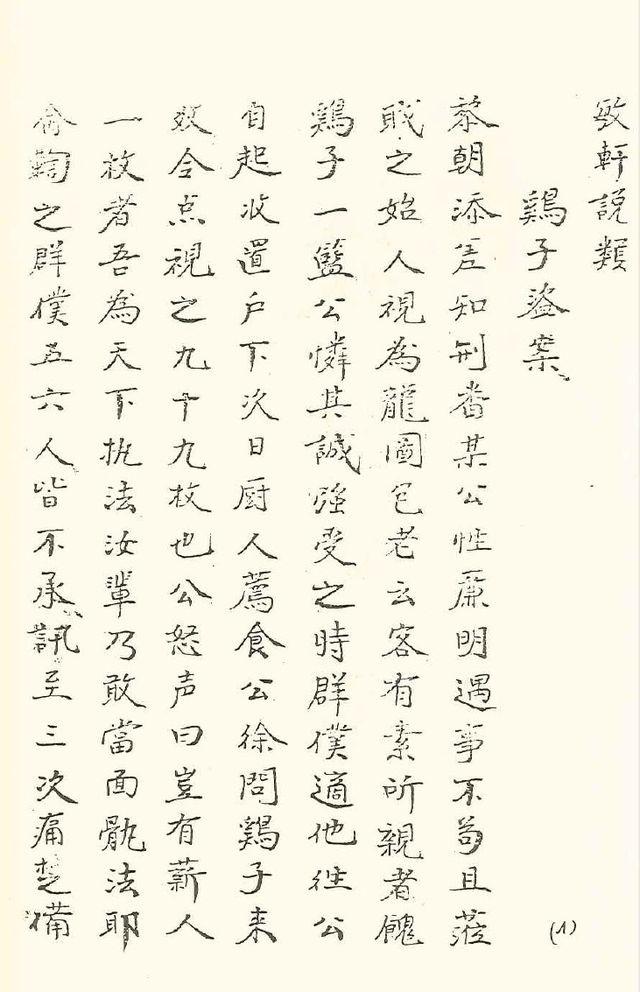 敏軒說類
鷄子盜案
黎朝添差知刑畨某公性廉明遇事不苟且蒞
職之始人視為龍圖包老云客有素所親者餽
鷄子一籃公憐其誠強受之時群僕適他徃公
自起收置戶下次日厨人薦食公徐問鷄子来
效令点視之九十九枚也公怒声曰豈有薪人
一枚者吾為天下执法汝輩乃敢當面骩法耶
之群僕五六人皆不承訊至三次痛楚備
(1)